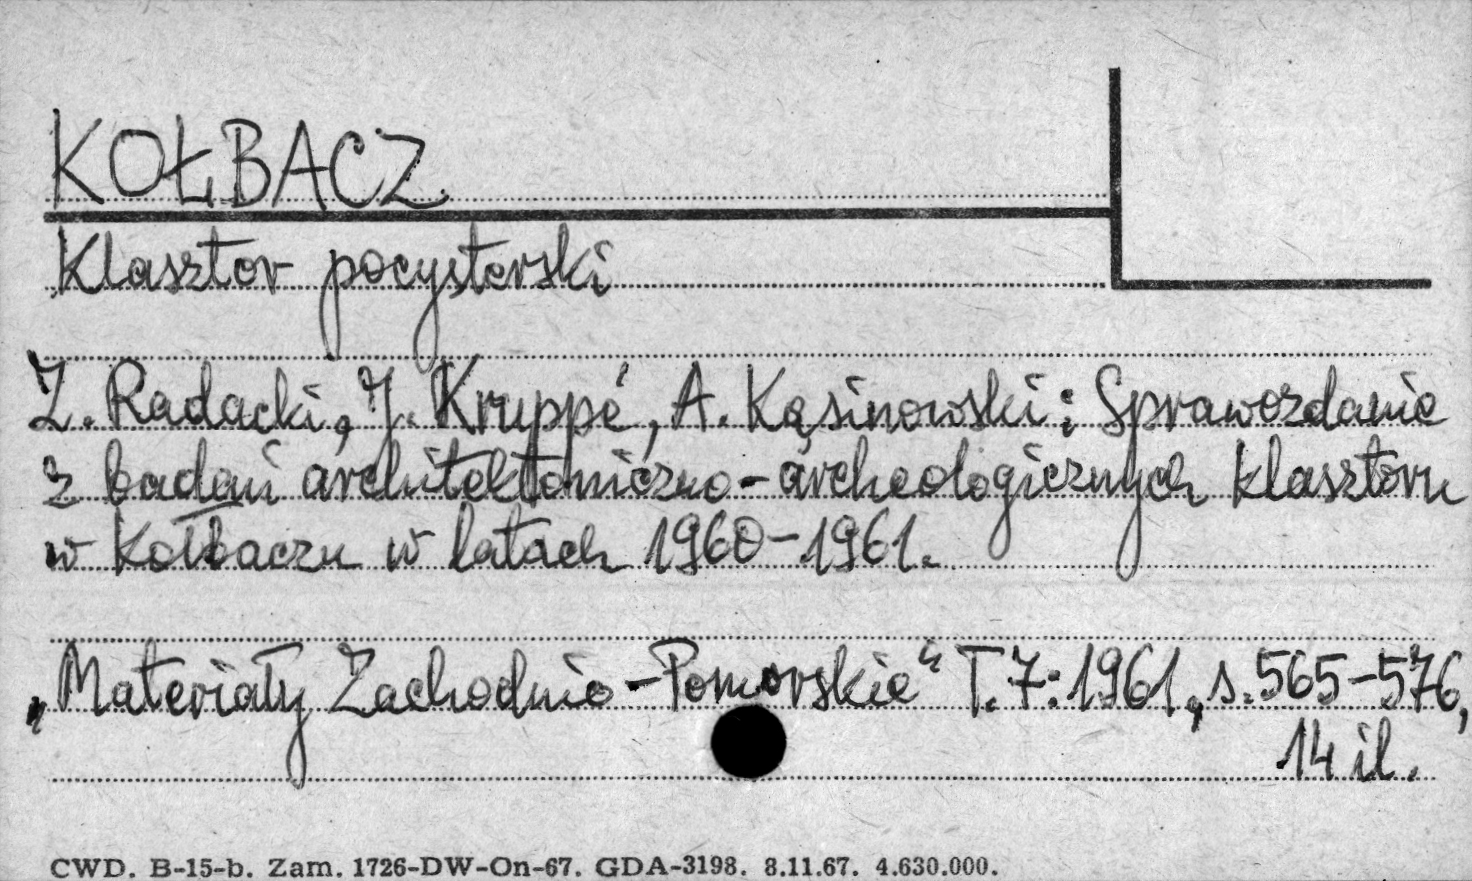 KOŁBACZ
Klasztor pocysterski
Z. Radacki, J. Kruppé, A. Kąsinowski: Sprawozdanie
z badań architektoniczno-archeologicznych klasztoru
w Kołbaczu w latach 1960-1961.
„Materiały Zachodnio-Pomorskie" T.7:1961, s.565-576,
14 il.
CWD. B-15-b. Zam. 1726-DW-On-67. GDA-3198. 8.11.67. 4.630.000.